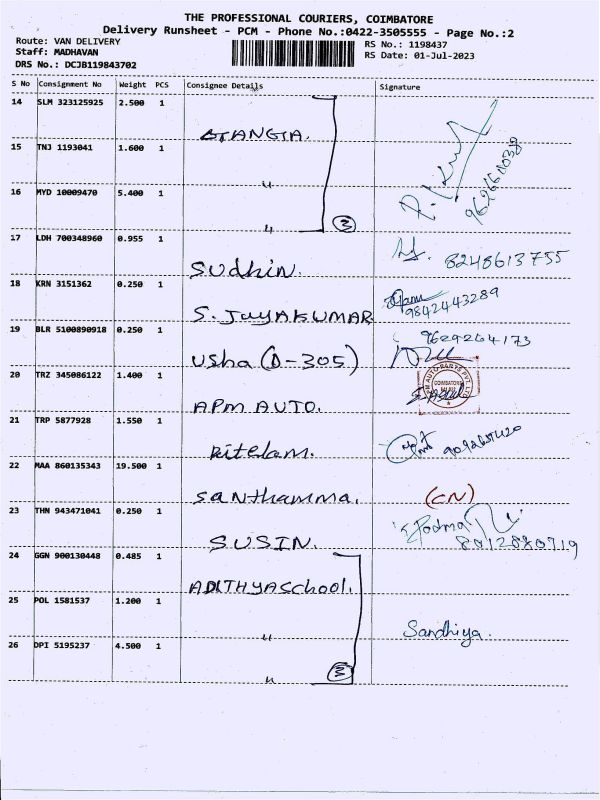 THE PROFESSIONAL COURIERS, COIMBATORE
Delivery Runsheet - PCM - Phone No.:0422-3505555 - Page No.:2
Route: VAN DELIVERY
RS No.: 1198437
Staff: MADHAVAN
RS Date: 01-Jul-2023
DRS No.: DCJB119843702
S No Consignment No Weight PCS Consignee Details Signature
14 SLM 323125925 2.500 1
15 TNJ 1193041 1.600 1 "
16 MYD 10009470 5.400 1 " 3
9626600380
17 LDH 700348960 0.955 1 Sudhin. 8248613755
18 KRN 3151362 0.250 1 S. JayAKUMAR 9842443289
19 BLR 5100890918 0.250 1 Usha (D-305) 9629264173
20 TRZ 345086122 1.400 1 APM AUTO.
COIMBATORE
21 TRP 5877928 1.550 1
22 MAA 860135343 19.500 1 Santhamma. (CN)
23 THN 943471041 0.250 1 SUSIN. Padma
8012880719
24 GGN 900130448 0.485 1 ADITHYA School.
25 POL 1581537 1.200 1 " Sandhiya.
26 DPI 5195237 4.500 1 " 3